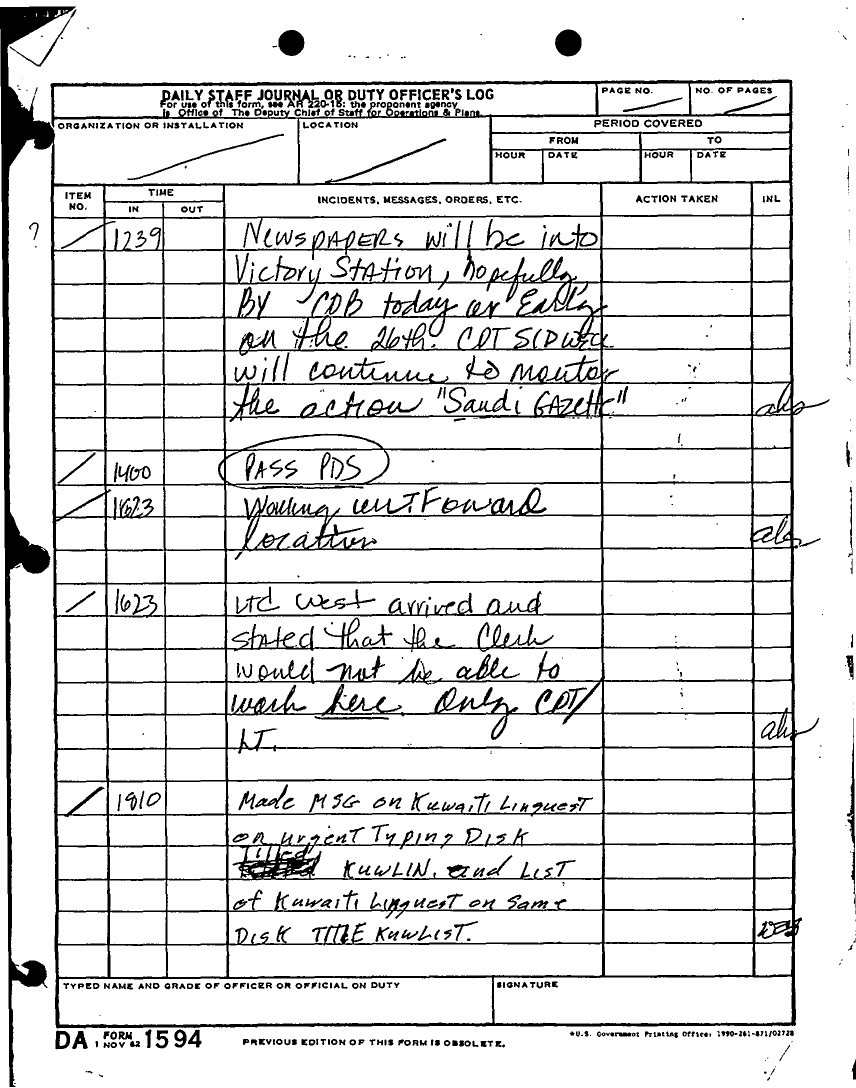 DAILY STAFF JOURNAL OR DUTY OFFICER'S LOG
For use of this form, see AR 220-15: the proponent agency
is Office of The Deputy Chief of Staff for Operations & Plans.
PAGE NO.
NO. OF PAGES
ORGANIZATION OR INSTALLATION
LOCATION
PERIOD COVERED
FROM
TO
HOUR
DATE
HOUR
DATE
ITEM NO.
TIME
IN
OUT
INCIDENTS, MESSAGES, ORDERS, ETC.
ACTION TAKEN
INL
?
1239
Newspapers will be into
Victory Station, hopefully,
By COB today or Early
on the 26th. CPT
will continue to monitor
the action "Saudi GAZette"
1400
PASS PDS
1623
Working Forward
location
1623
LTC West arrived and
stated that the Clerk
would not be able to
work here. Only CPT/
LT.
1810
Made MSG on Kuwaiti Linguest
on urgent Typing Disk
Titled KUWLIN. and LIST
of Kuwaiti Linguest on Same
Disk TITLE KUWLIST.
TYPED NAME AND GRADE OF OFFICER OR OFFICIAL ON DUTY
SIGNATURE
DA FORM 1 NOV 62 1594
PREVIOUS EDITION OF THIS FORM IS OBSOLETE.
*U.S. Government Printing Office: 1990-261-871/02728